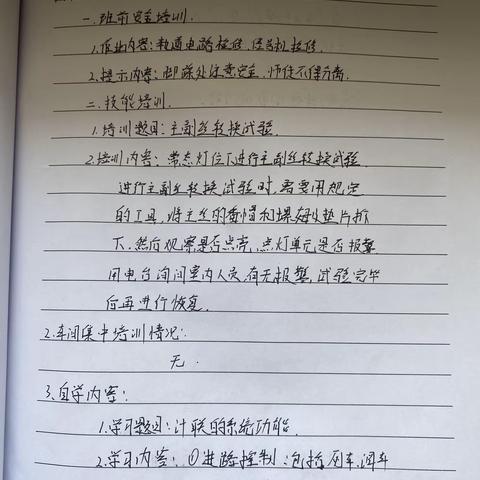 一.班前安全培训.
1.作业内容:轨道电路检修,信号机检修.
2.提示内容:邻线处注意安全,师徒不得分离.
二.技能培训.
1.培训题目:主副丝转换试验.
2.培训内容:常态灯位下进行主副丝转换试验.
进行主副丝转换试验时,需要用规定
的工具,将主丝的螺帽和螺母及垫片拆
下,然后观察是否点亮,点灯单元是否报警
用电台询问室内人员,有无报警,试验完毕
后再进行恢复.
2.车间集中培训情况:
无.
3.自学内容:
1.学习题目:计联的系统功能.
2.学习内容:①进路控制:包括列车、调车